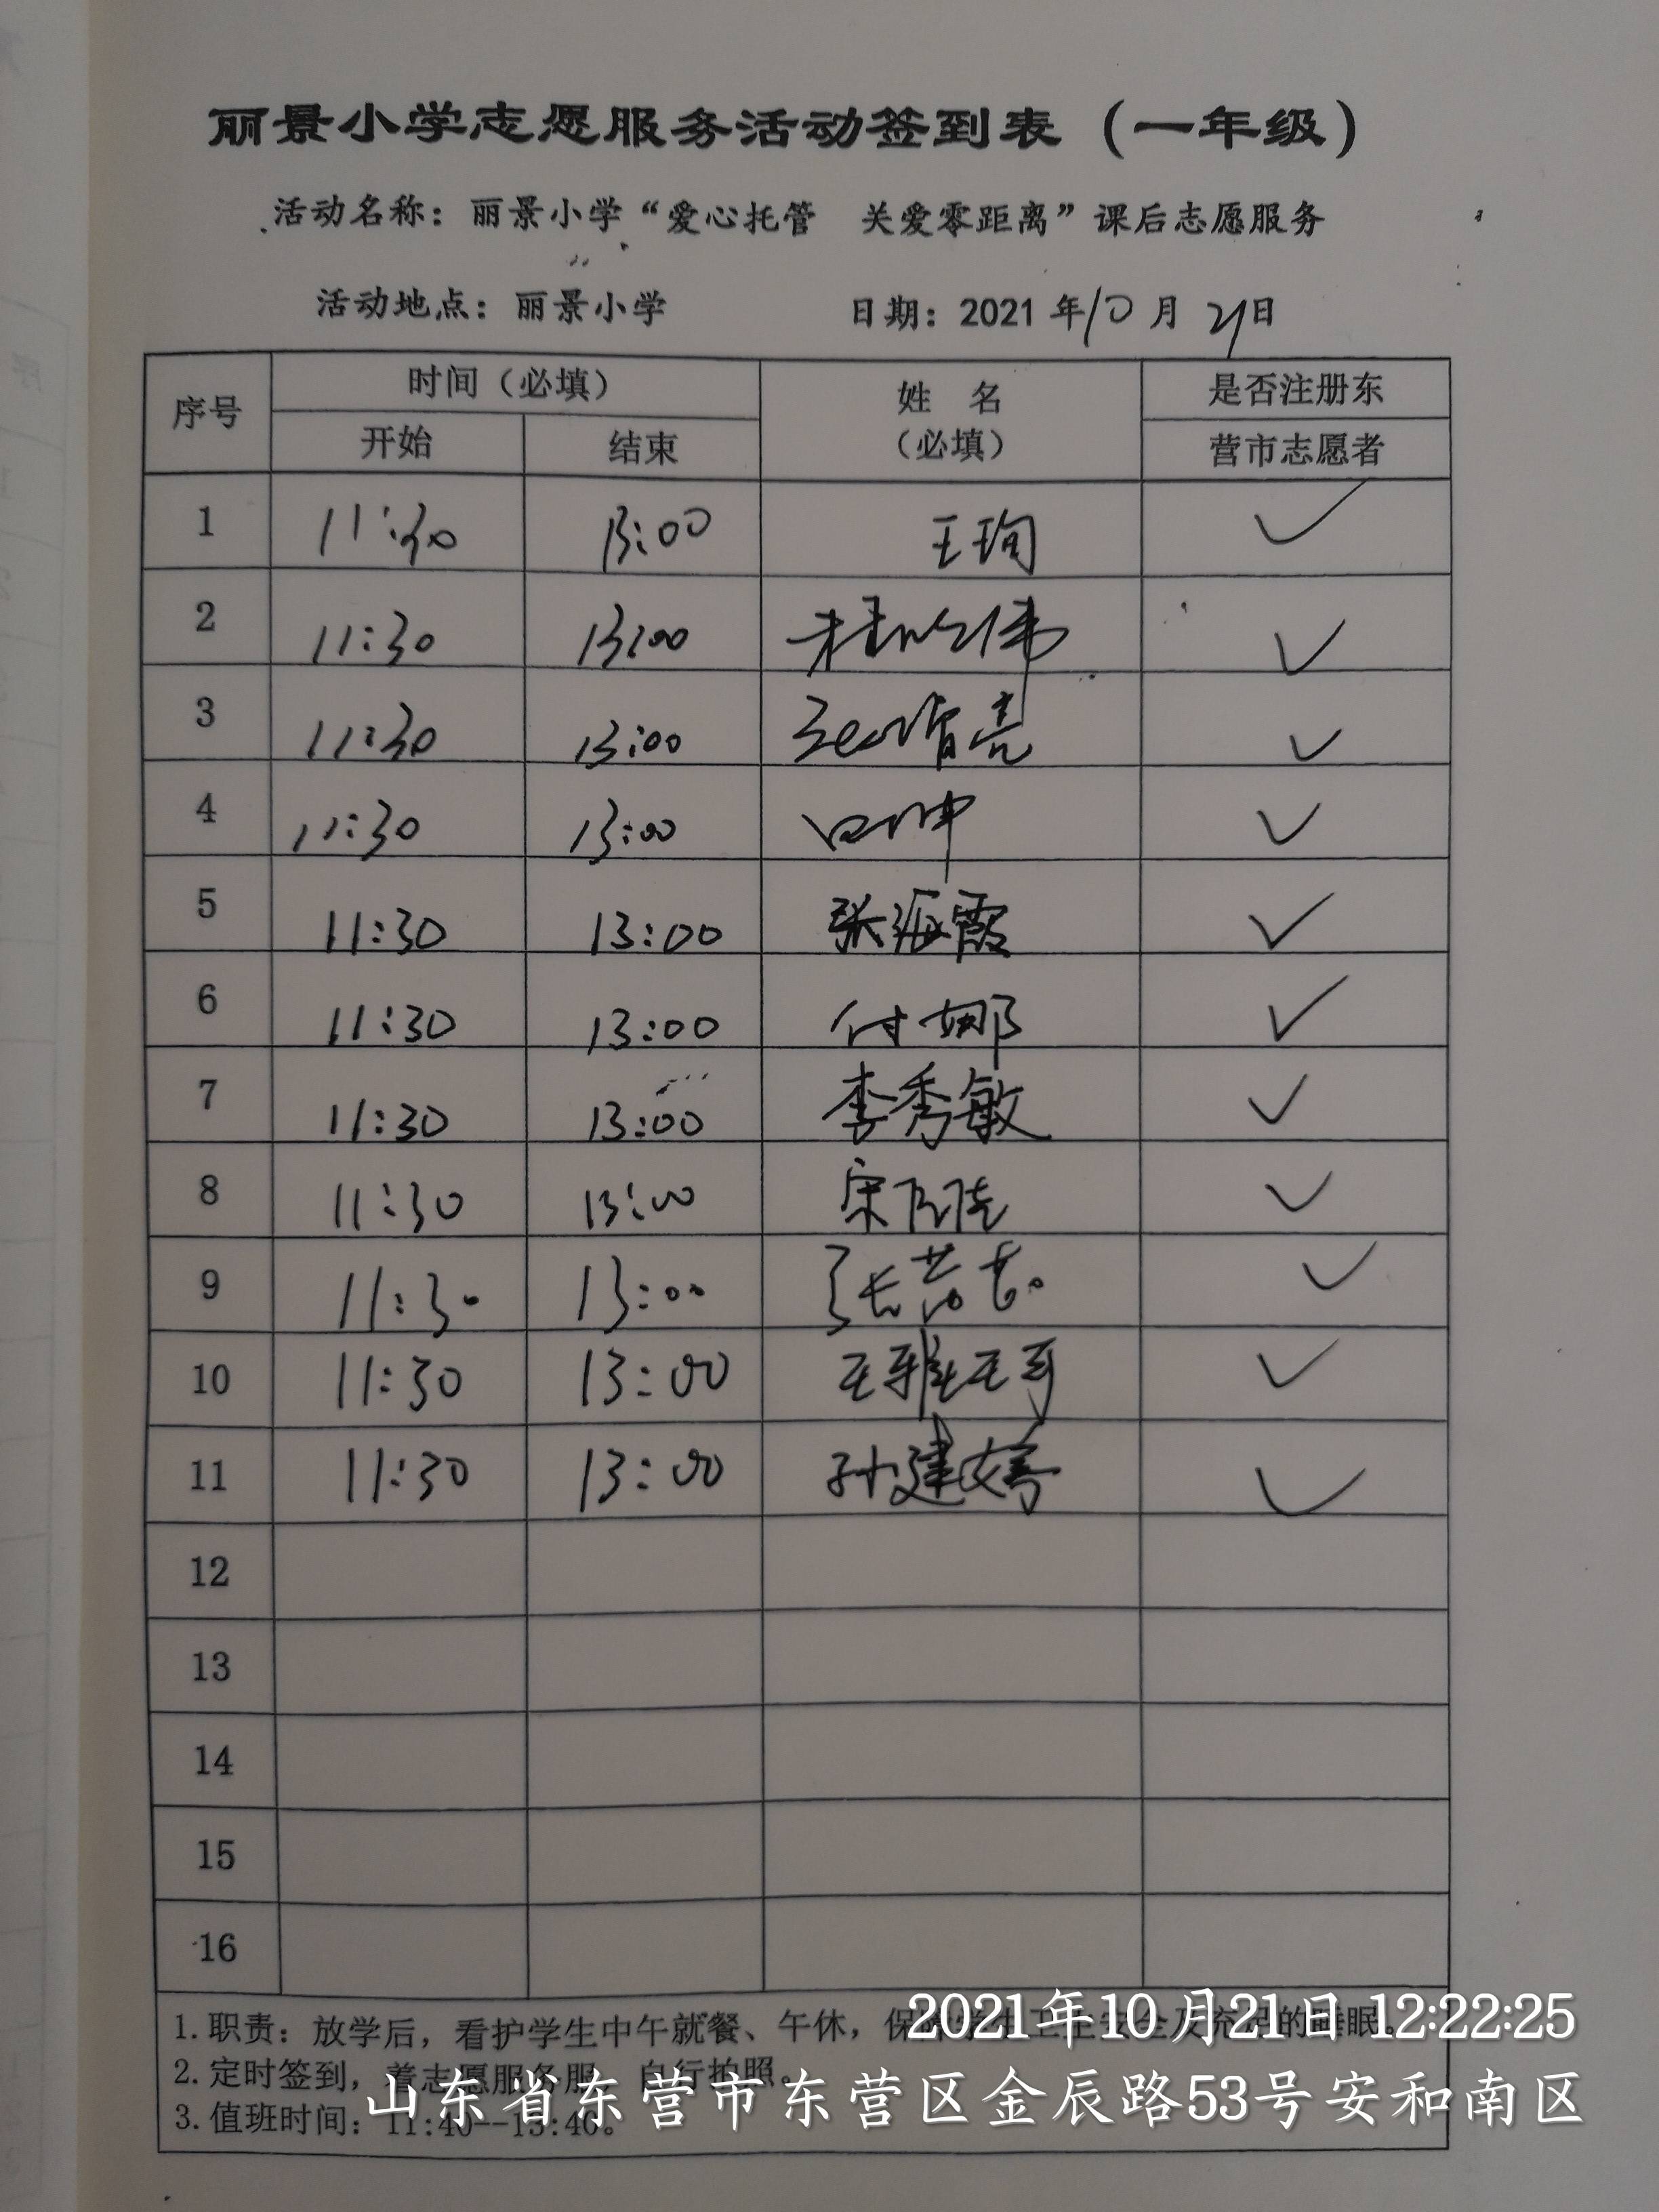 丽景小学志愿服务活动签到表（一年级）
活动名称：丽景小学“爱心托管 关爱零距离”课后志愿服务
活动地点：丽景小学 日期：2021年10月21日
序号 时间（必填） 姓名（必填） 是否注册东营市志愿者
开始 结束
1 11:30 13:00 王珣 ✓
2 11:30 13:00 ✓
3 11:30 13:00 ✓
4 11:30 13:00 ✓
5 11:30 13:00 张海霞 ✓
6 11:30 13:00 付娜 ✓
7 11:30 13:00 李秀敏 ✓
8 11:30 13:00 宋 ✓
9 11:30 13:00 张 ✓
10 11:30 13:00 王雅珂 ✓
11 11:30 13:00 孙建婷 ✓
12
13
14
15
16
1.职责：放学后，看护学生中午就餐、午休，保障学生卫生安全及充足的睡眠。
2.定时签到，着志愿服务服，自行拍照。
3.值班时间：11:40--13:40。
2021年10月21日 12:22:25
山东省东营市东营区金辰路53号安和南区